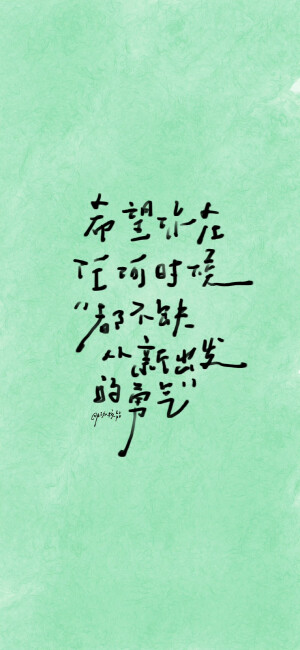 希望你在
任何时候
“都不缺
从新出发
的勇气”